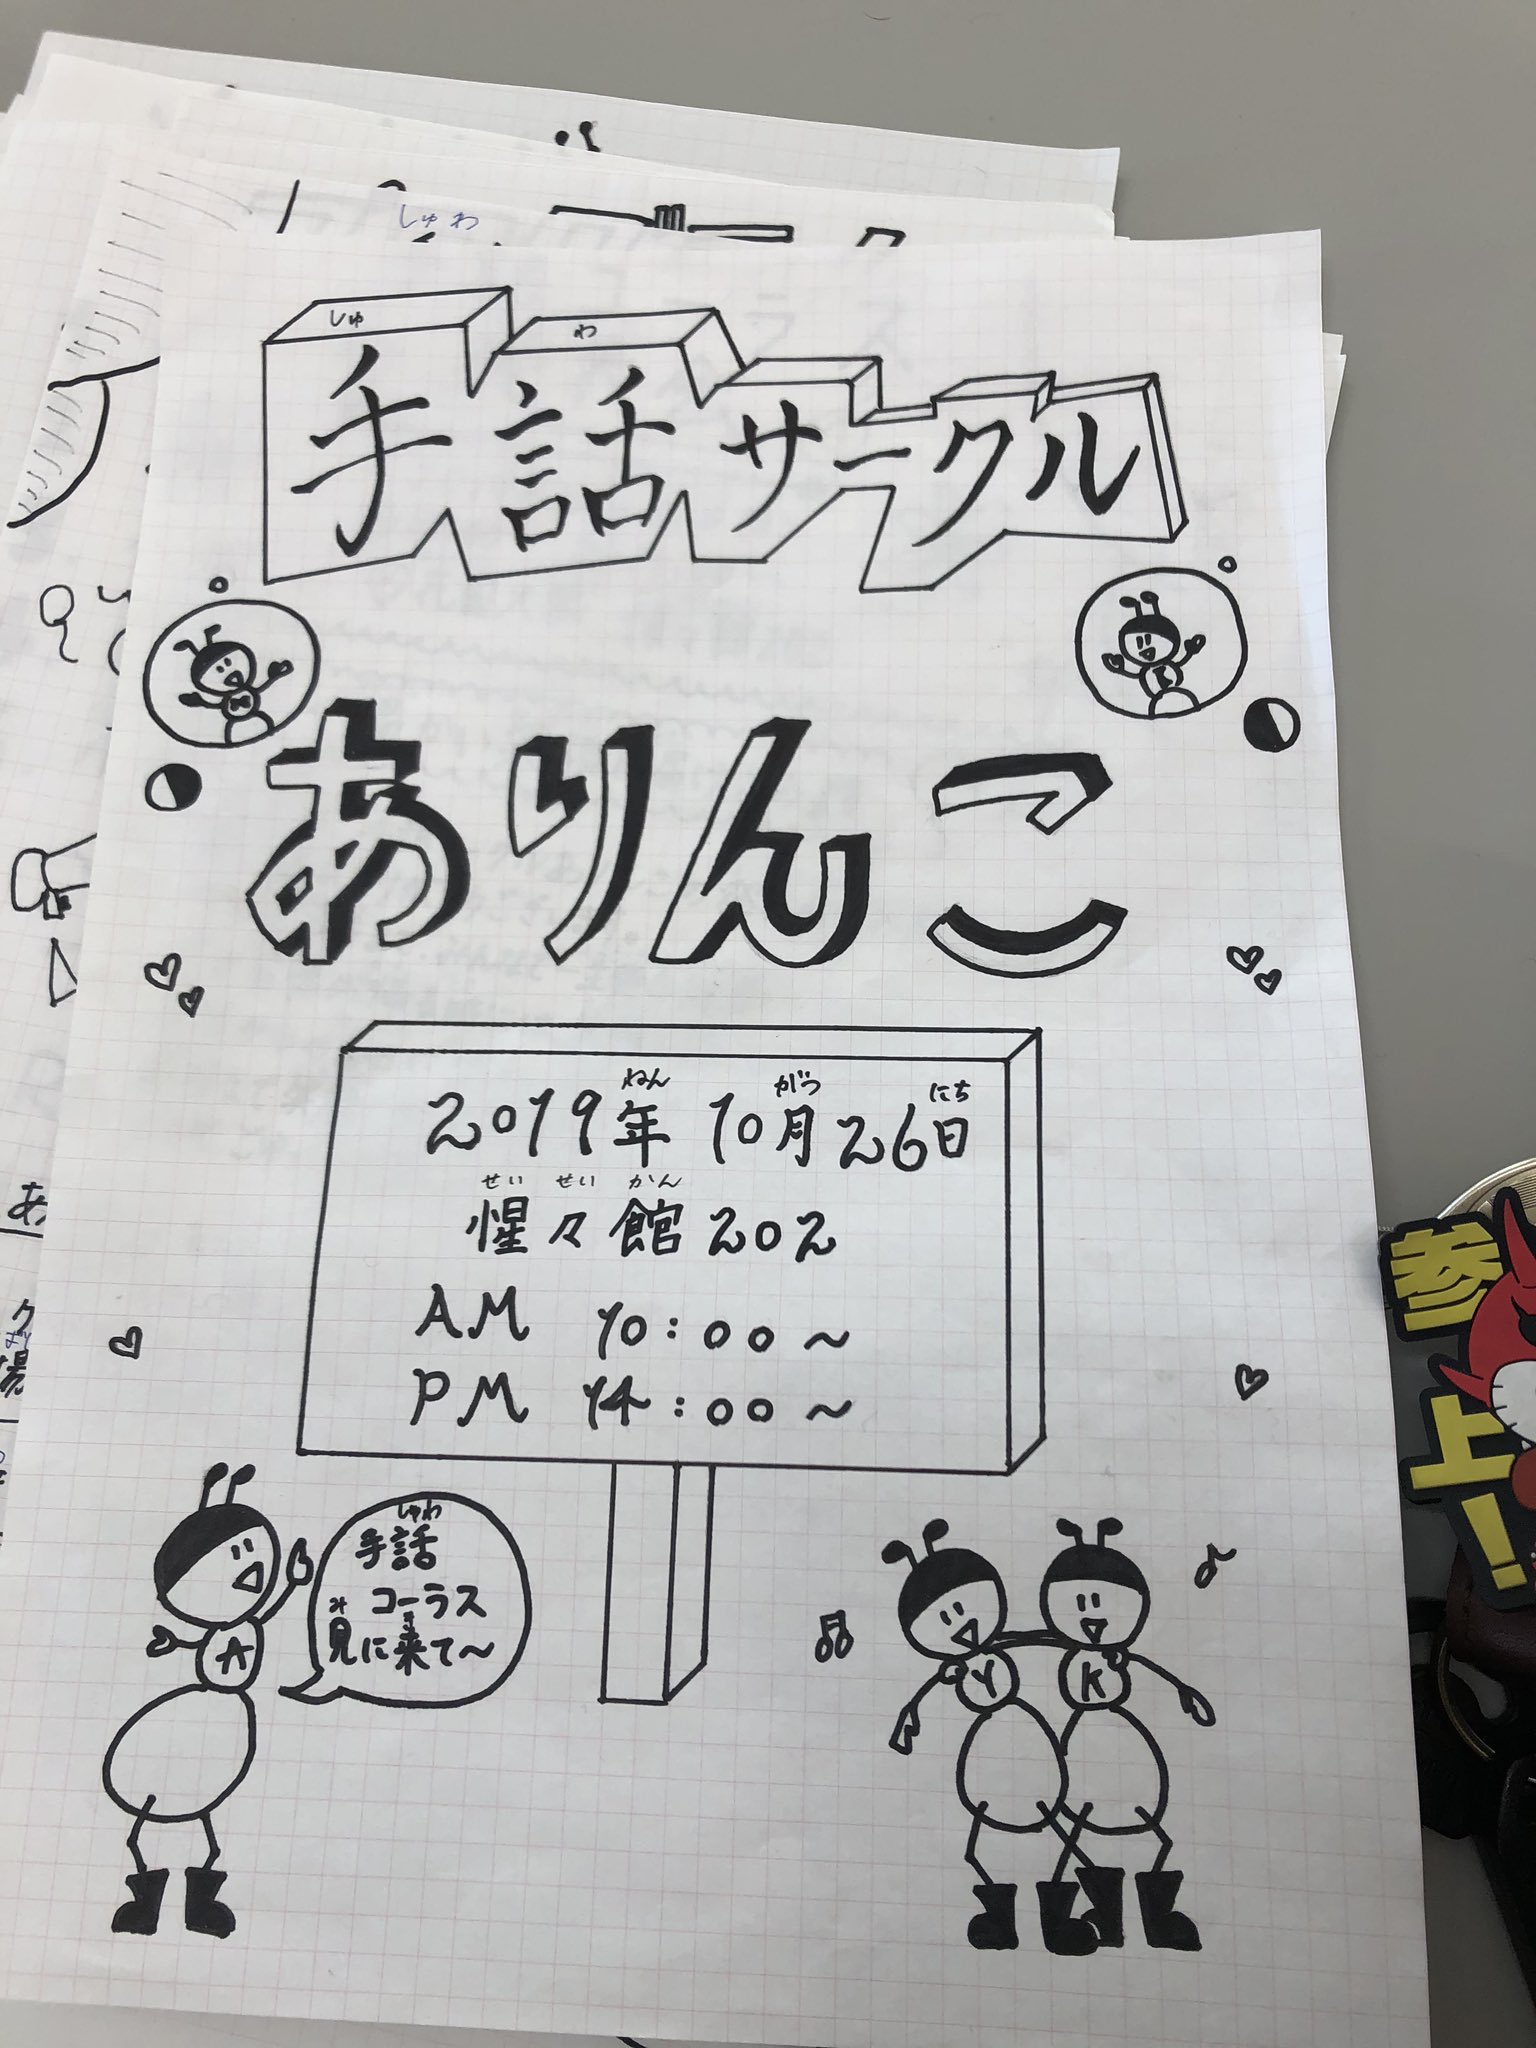 しゅわ
しゅ わ
手話サークル
ありんこ
ねん がつ にち
2019年 10月26日
せい せい かん
惺々館 202
AM 10:00～
PM 14:00～
しゅわ
手話
コーラス
み き
見に来て～
A
Y K
参上!